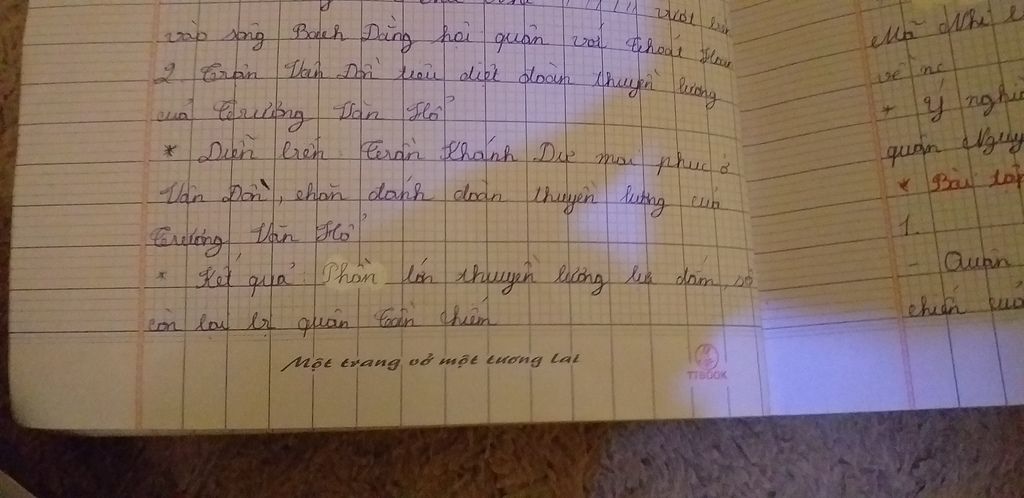 vào sông Bạch Đằng hội quân với Thoát Hoan
2. Trận Vân Đồn tiêu diệt đoàn thuyền lương
của Trương Văn Hổ
* Diễn biến Trần Khánh Dư mai phục ở
Vân Đồn, chặn đánh đoàn thuyền lương của
Trương Văn Hổ
* Kết quả Phần lớn thuyền lương bị đắm, số
còn lại bị quân Trần chiếm
Một trang vở một tương lai
TTBOOK
Mã Nhi
về nc
* Ý nghĩa
quân Nguyên
* Bài tập
1.
- Quân
chiến